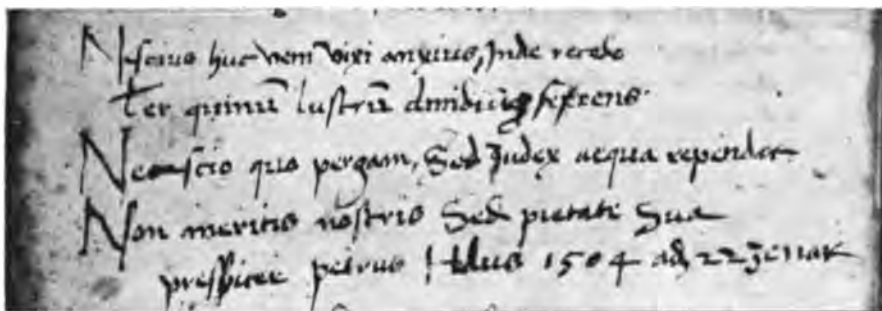 Nescius huc veni vixi anxius, Inde recedo
Ter quinū lustrū dimidiūq
Nec scio quo pergam, Sed Iudex aequa rependet
Non meritis nostris Sed pietate Sua
petrus 1504 ad 22 Jenar